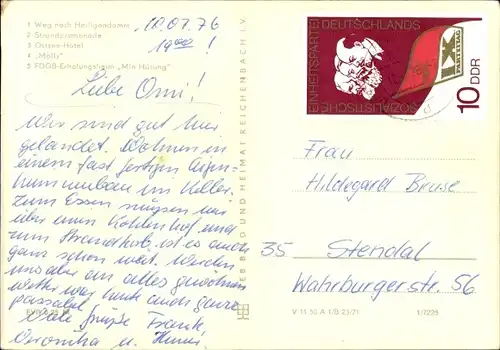 1 Weg nach Heiligendamm
2 Strandpromenade
3 Ostsee-Hotel
4 „Molli"
5 FDGB-Erholungsheim „Min Hüsung"
10.07.76
19 00!
Liebe Omi!
Wir sind gut hier
gelandet. Wohnen in
einem fast fertigen Eigen-
heimneubau im Keller.
Zum Essen müssen wir
über einen Kohlenhof und
zum Strandkorb ist es auch
ganz schön weit. Werden
uns aber an alles gewöhnen
Wetter war heute auch ganz
passabel
Viele Grüße Frank,
Veronika u.
VEB BILD UND HEIMAT REICHENBACH I. V.
SOZIALISTISCHE EINHEITSPARTEI DEUTSCHLANDS
IX.
PARTEITAG
10 DDR
Frau
Hildegard Bruse
35 Stendal
Wahrburgerstr. 56
V 11 50 A 1/B 23/71
1/7225